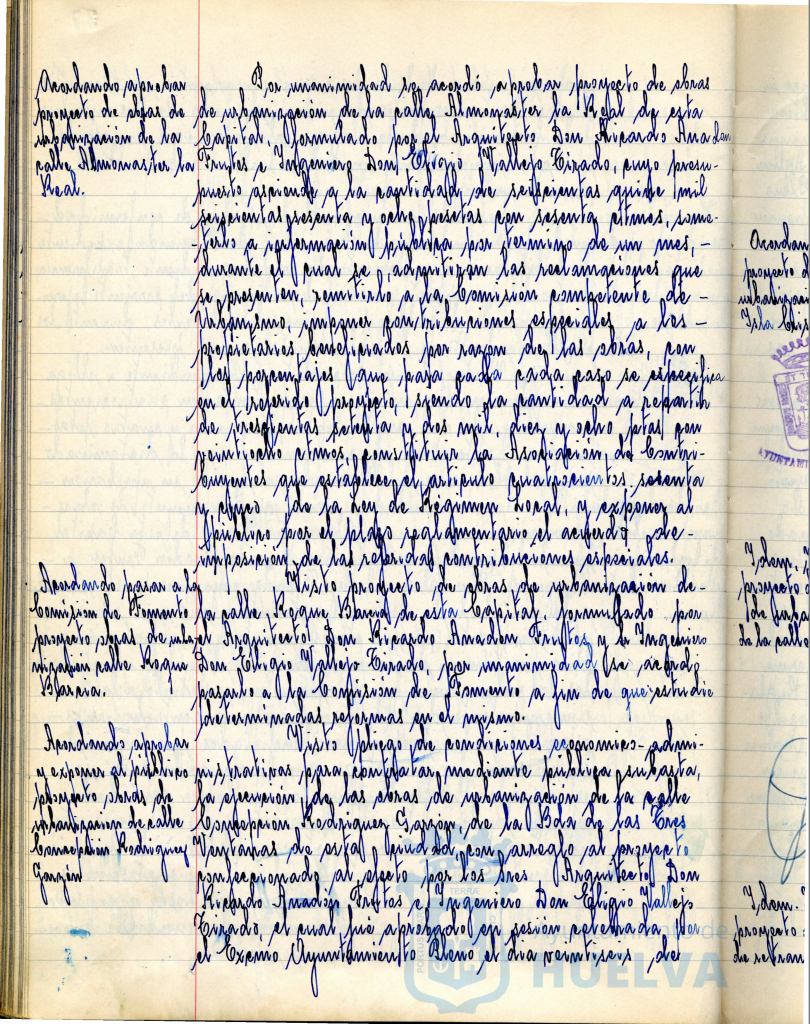 Acordando aprobar
proyecto de obras de
urbanización de la
calle Almonaster la
Real.
Por unanimidad se acordó aprobar proyecto de obras
de urbanización de la calle Almonaster la Real de esta
Capital, formulado por el Arquitecto Don Ricardo Anadon
Frutos e Ingeniero Don Eligio Vallejo Tirado, cuyo presu-
puesto asciende a la cantidad de seiscientas quince mil
seiscientas sesenta y ocho pesetas con sesenta ctmos, some-
terlo a información pública por termino de un mes, -
durante el cual se admitiran las reclamaciones que
se presenten, remitirlo a la Comisión competente de -
Urbanismo, imponer contribuciones especiales a los -
propietarios beneficiados por razon de las obras, con
los porcentajes que para cada cada caso se especifica
en el referido proyecto, siendo la cantidad a repartir
de trescientas setenta y dos mil, diez y ocho ptas con
veintiocho ctmos, constituir la Asociación de Contri-
buyentes que establece el artículo cuatrocientos sesenta
y cinco de la Ley de Régimen Local, y exponer al
público por el plazo reglamentario el acuerdo de -
imposición de las referidas contribuciones especiales.
Acordando pasar a la
Comisión de Fomento
proyecto obras de urba-
nización calle Roque
Barcia.
Visto proyecto de obras de urbanización de -
la calle Roque Barcia de esta Capital, formulado por
el Arquitecto Don Ricardo Anadón Frutos y e Ingeniero
Don Eligio Vallejo Tirado, por unanimidad se acordó
pasarlo a la Comisión de Fomento a fin de que estudie
determinadas reformas en el mismo.
Acordando aprobar
y exponer al público
proyecto obras de
urbanizacion de calle
Concepción Rodriguez
Garzón
Visto pliego de condiciones economico-admi-
nistrativas para contratar mediante pública subasta,
la ejecución de las obras de urbanización de la calle
Concepción Rodriguez Garzón de la Bda de las Tres
Ventanas de esta Ciudad, con arreglo al proyecto
confeccionado al efecto por los Sres Arquitecto Don
Ricardo Anadón Frutos e Ingeniero Don Eligio Vallejo
Tirado, el cual fue aprobado en sesión celebrada por
el Excmo Ayuntamiento Pleno el día veintiseis de
Acordan
proyecto d
urbanizaci
Isla Cris
Idem.
proyecto d
de urba
de la calle
Idem.
proyecto
de
Ayuntamiento de
HUELVA